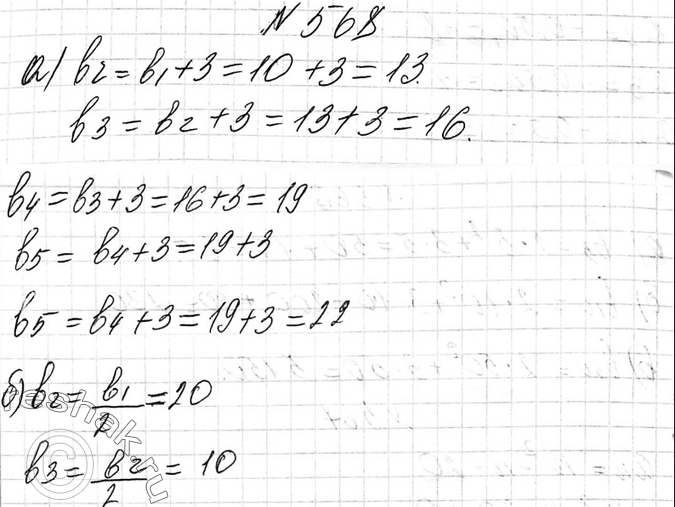 №568
а) b2 = b1 + 3 = 10 + 3 = 13.
b3 = b2 + 3 = 13 + 3 = 16.
b4 = b3 + 3 = 16 + 3 = 19
b5 = b4 + 3 = 19 + 3
b5 = b4 + 3 = 19 + 3 = 22
б) b2 = b1/2 = 20
b3 = b2/2 = 10